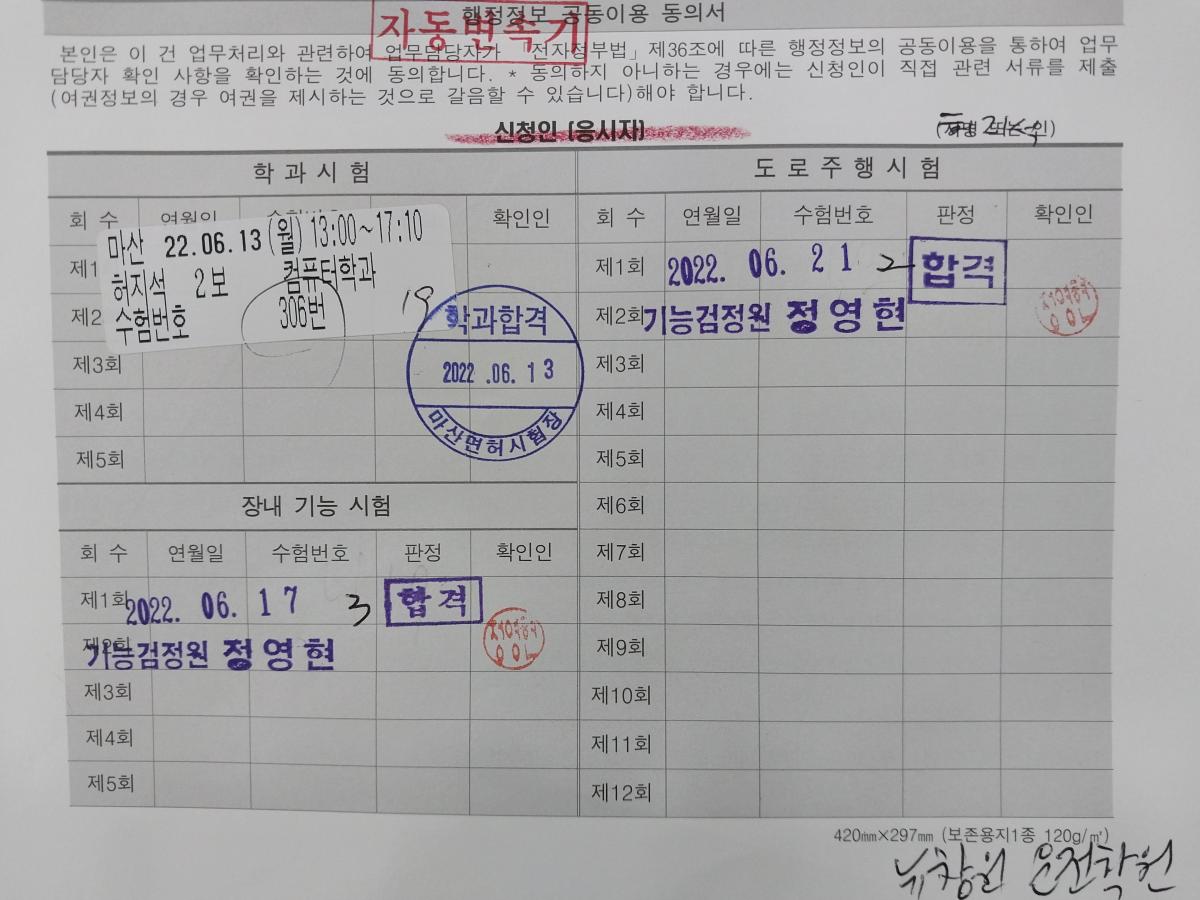 행정정보 공동이용 동의서
자동변속기
본인은 이 건 업무처리와 관련하여 업무담당자가 「전자정부법」제36조에 따른 행정정보의 공동이용을 통하여 업무
담당자 확인 사항을 확인하는 것에 동의합니다. * 동의하지 아니하는 경우에는 신청인이 직접 관련 서류를 제출
(여권정보의 경우 여권을 제시하는 것으로 갈음할 수 있습니다)해야 합니다.
신청인 (응시자)
학 과 시 험
회 수 연월일 수험번호 확인인
마산 22.06.13 (월) 13:00~17:10
허지석 2보 컴퓨터학과
수험번호 306번
19
제1
제2
제3회
제4회
제5회
학과합격
2022 .06. 13
마산면허시험장
장내 기능 시험
회 수 연월일 수험번호 판정 확인인
제1회 2022. 06. 17 3 합격
제2회 기능검정원 정영현
제3회
제4회
제5회
도 로 주 행 시 험
회 수 연월일 수험번호 판정 확인인
제1회 2022. 06. 21 2 합격
제2회 기능검정원 정영현
제3회
제4회
제5회
제6회
제7회
제8회
제9회
제10회
제11회
제12회
420㎜×297㎜ (보존용지1종 120g/㎡)
뉴창원 운전학원